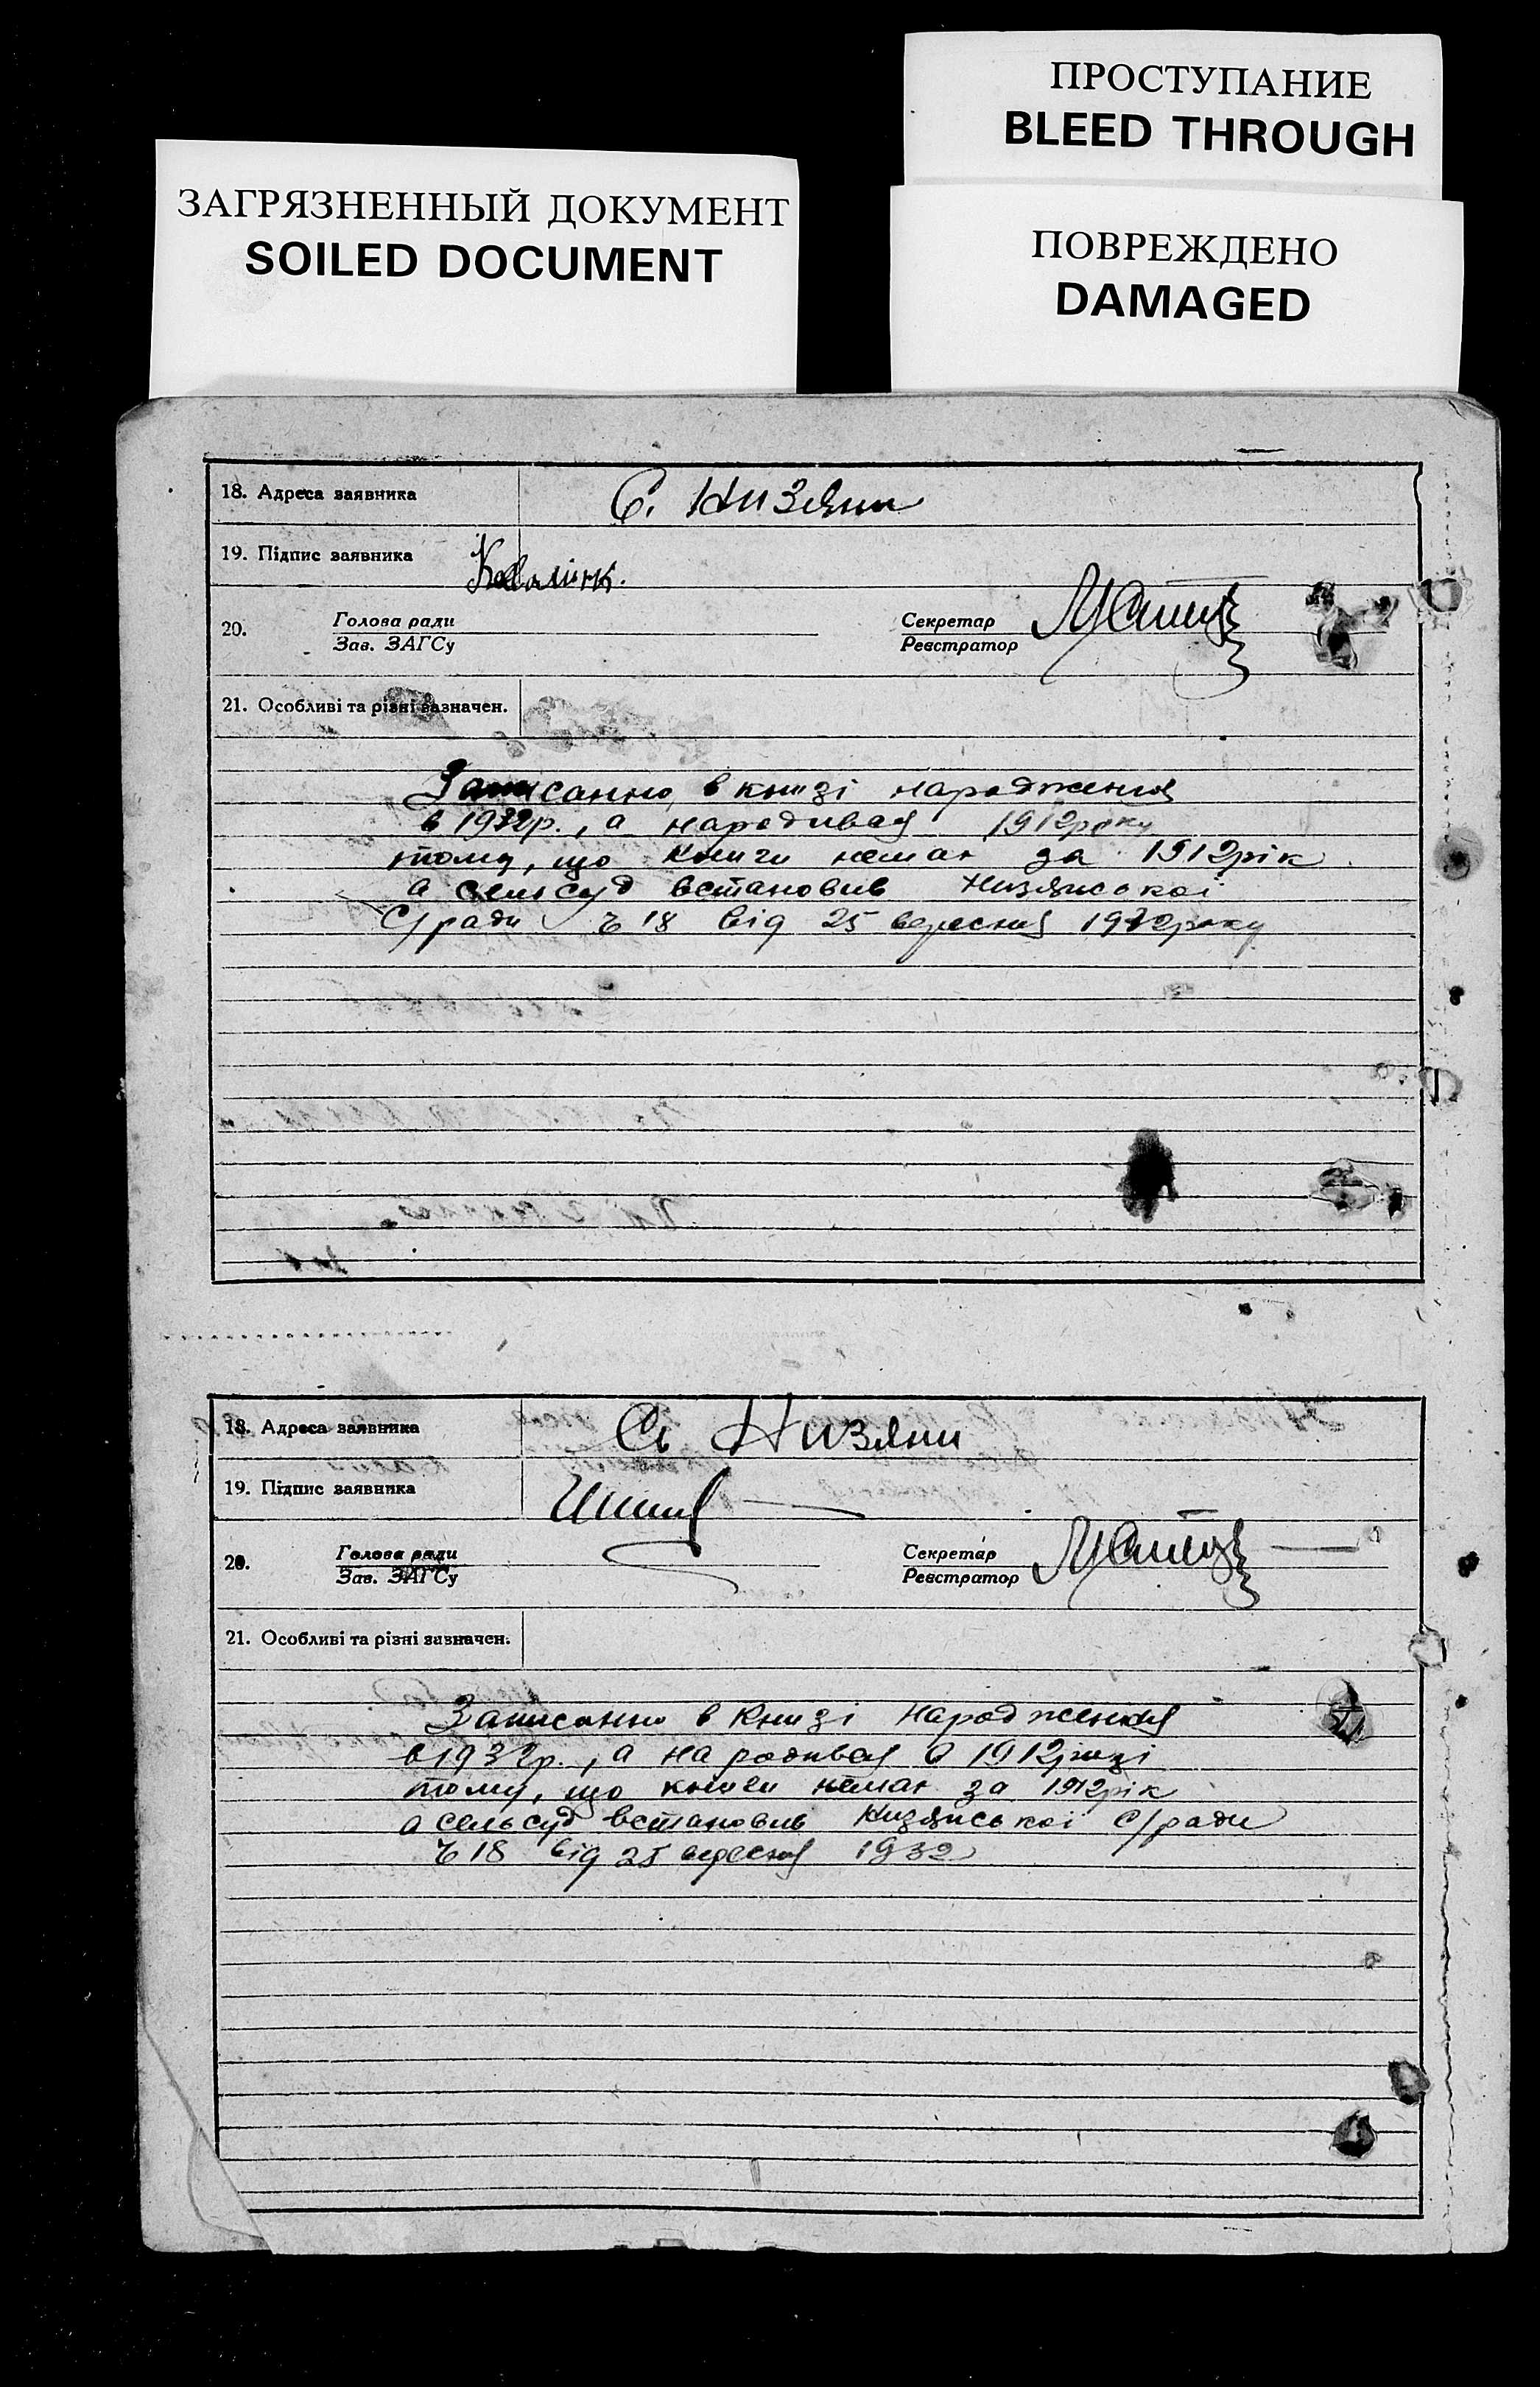 ПРОСТУПАНИЕ
BLEED THROUGH
ЗАГРЯЗНЕННЫЙ ДОКУМЕНТ
SOILED DOCUMENT
ПОВРЕЖДЕНО
DAMAGED
18. Адреса заявника С. Низяни
19. Підпис заявника
20. Голова ради Секретар
Зав. ЗАГСу Реєстратор
21. Особливі та різні зазначен.
Записанно в книзі народження
в 1932р., а народивая 1912року
тому, що книги немає за 1912рік
а сельсуд встановив Низянської
С/ради Ч 18 від 25 вересня 1932року
18. Адреса заявника С. Низяни
19. Підпис заявника
20. Голова ради Секретар
Зав. ЗАГСу Реєстратор
21. Особливі та різні зазначен.
Записанно в Книзі Народження
в 1932р., а народивая в 1912році
тому, що книги немає за 1912рік
а сельсуд встановив Низянської С/ради
Ч 18 від 25 вересня 1932